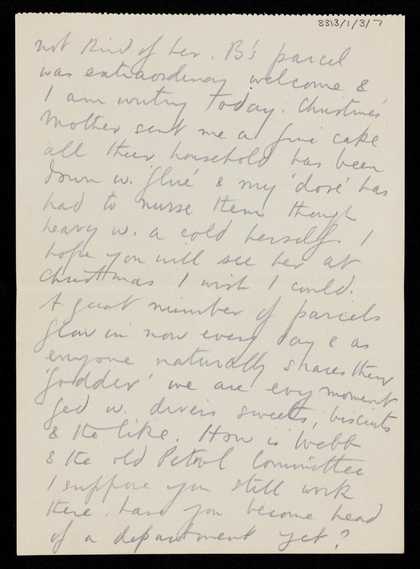 8313/1/3/7
not kind of her. B's parcel
was extraordinary welcome &
I am writing today. Christine's
Mother sent me a fine cake
all their household has been
down w. 'flue' & my 'dove' has
had to nurse them though
heavy w. a cold herself. I
hope you will see her at
Christmas I wish I could.
A great number of parcels
flow in now every day & as
everyone naturally shares their
'fodder' we are every moment
fed w. divers sweets, biscuits
& the like. How is Webb
& the old Petrol Committee
I suppose you still work
there. have you become head
of a department yet?